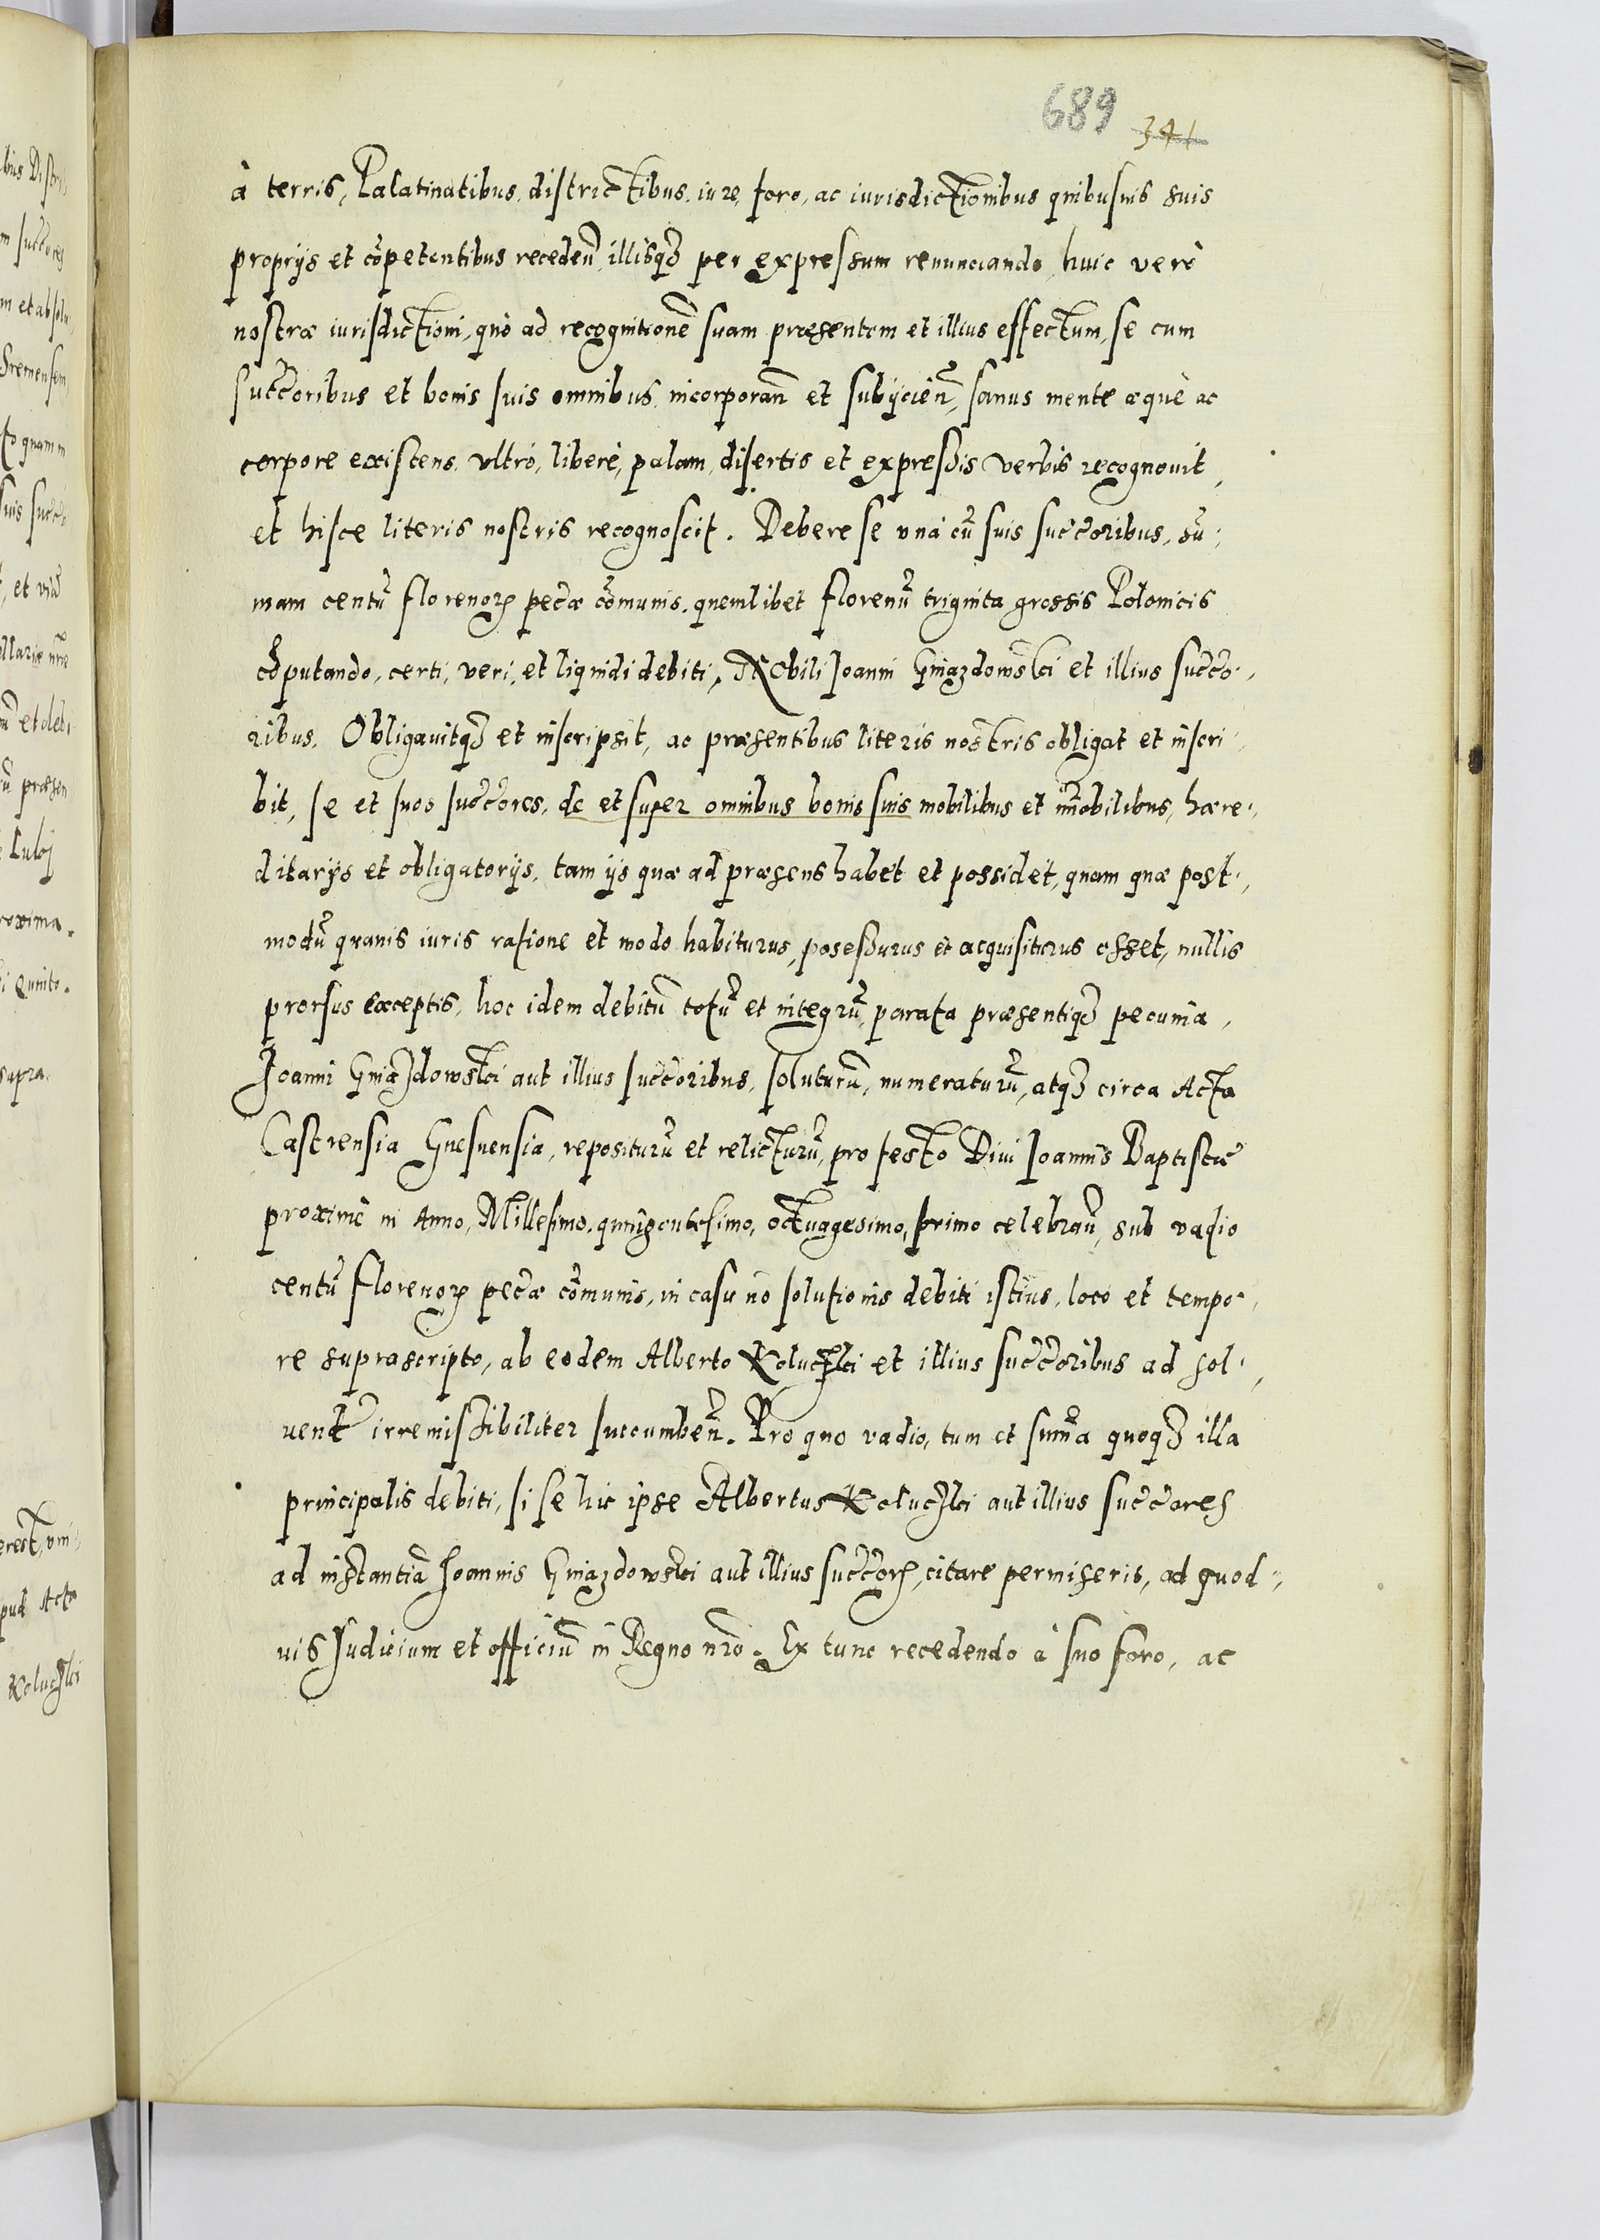 689 341
à terris, Palatinatibus, districtibus, iure, foro, ac iurisdictionibus quibusuis suis
proprijs et cõpetentibus receden̄, illisqȝ per expressum renunciando, huic verò
nostræ iurisdictioni, quò ad recognitionē suam præsentem et illius effectum, se cum
succ̄oribus et bonis suis omnibus, incorporan̄ et subijcien̄, sanus mente æquè ac
corpore existens, vltrò, liberè, palam, disertis et expressis verbis recognouit,
et hisce literis nostris recognoscit. Debere se vnà cū suis succ̄oribus, su-
mam centū florenorꝝ pec̄æ cõmunis, quemlibet florenū triginta grossis Polonicis
cõputando, certi, veri, et liquidi debiti, Nobili Joanni Gniazdowski et illius succ̄o-
ribus. Obligauitqȝ et inscripsit, ac præsentibus literis nostris obligat et inscri-
bit, se et suos succ̄ores, de et super omnibus bonis suis mobilibus et im̄obilibus, hære-
ditarijs et obligatorijs, tam ijs quæ ad præsens habet et possidet, quam quæ post-
modū quauis iuris ratione et modo habiturus, posessurus et acquisiturus esset, nullis
prorsus exceptis, hoc idem debitū totū et integrū, parata præsentiqȝ pecunia,
Joanni Gniazdowski aut illius succ̄oribus, soluturū, numeraturū, atqȝ circa Acta
Castrensia Gnesnensia, repositurū et relicturū, pro festo Diui Joannis Baptistæ
proximè in Anno, Millesimo, quingentesimo, octuagesimo, primo celebran̄, sub vadio
centū florenorꝝ pec̄æ cõmunis, in casu nõ solutionis debiti istius, loco et tempo-
re suprascripto, ab eodem Alberto Koluczki et illius succ̄oribus ad sol-
uend̄ irremissibiliter succumben̄. Pro quo vadio, tum et sum̄a quoqȝ illa
principalis debiti, si se hic ipse Albertus Koluczki aut illius succ̄ores
ad instantiā Joannis Gniazdowski aut illius succ̄orꝝ, citare permiseris, ad quod-
uis Judicium et officiū in Regno nr̄o. Ex tunc recedendo à suo foro, ac